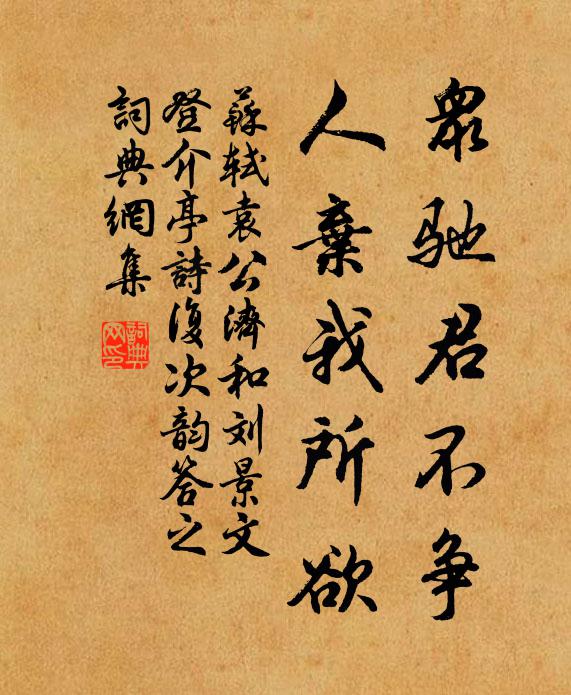 眾馳君不争
人棄我所欲
蘇軾袁公濟和刘景文
登介亭詩復次韵答之
詞典網集
詞典网印